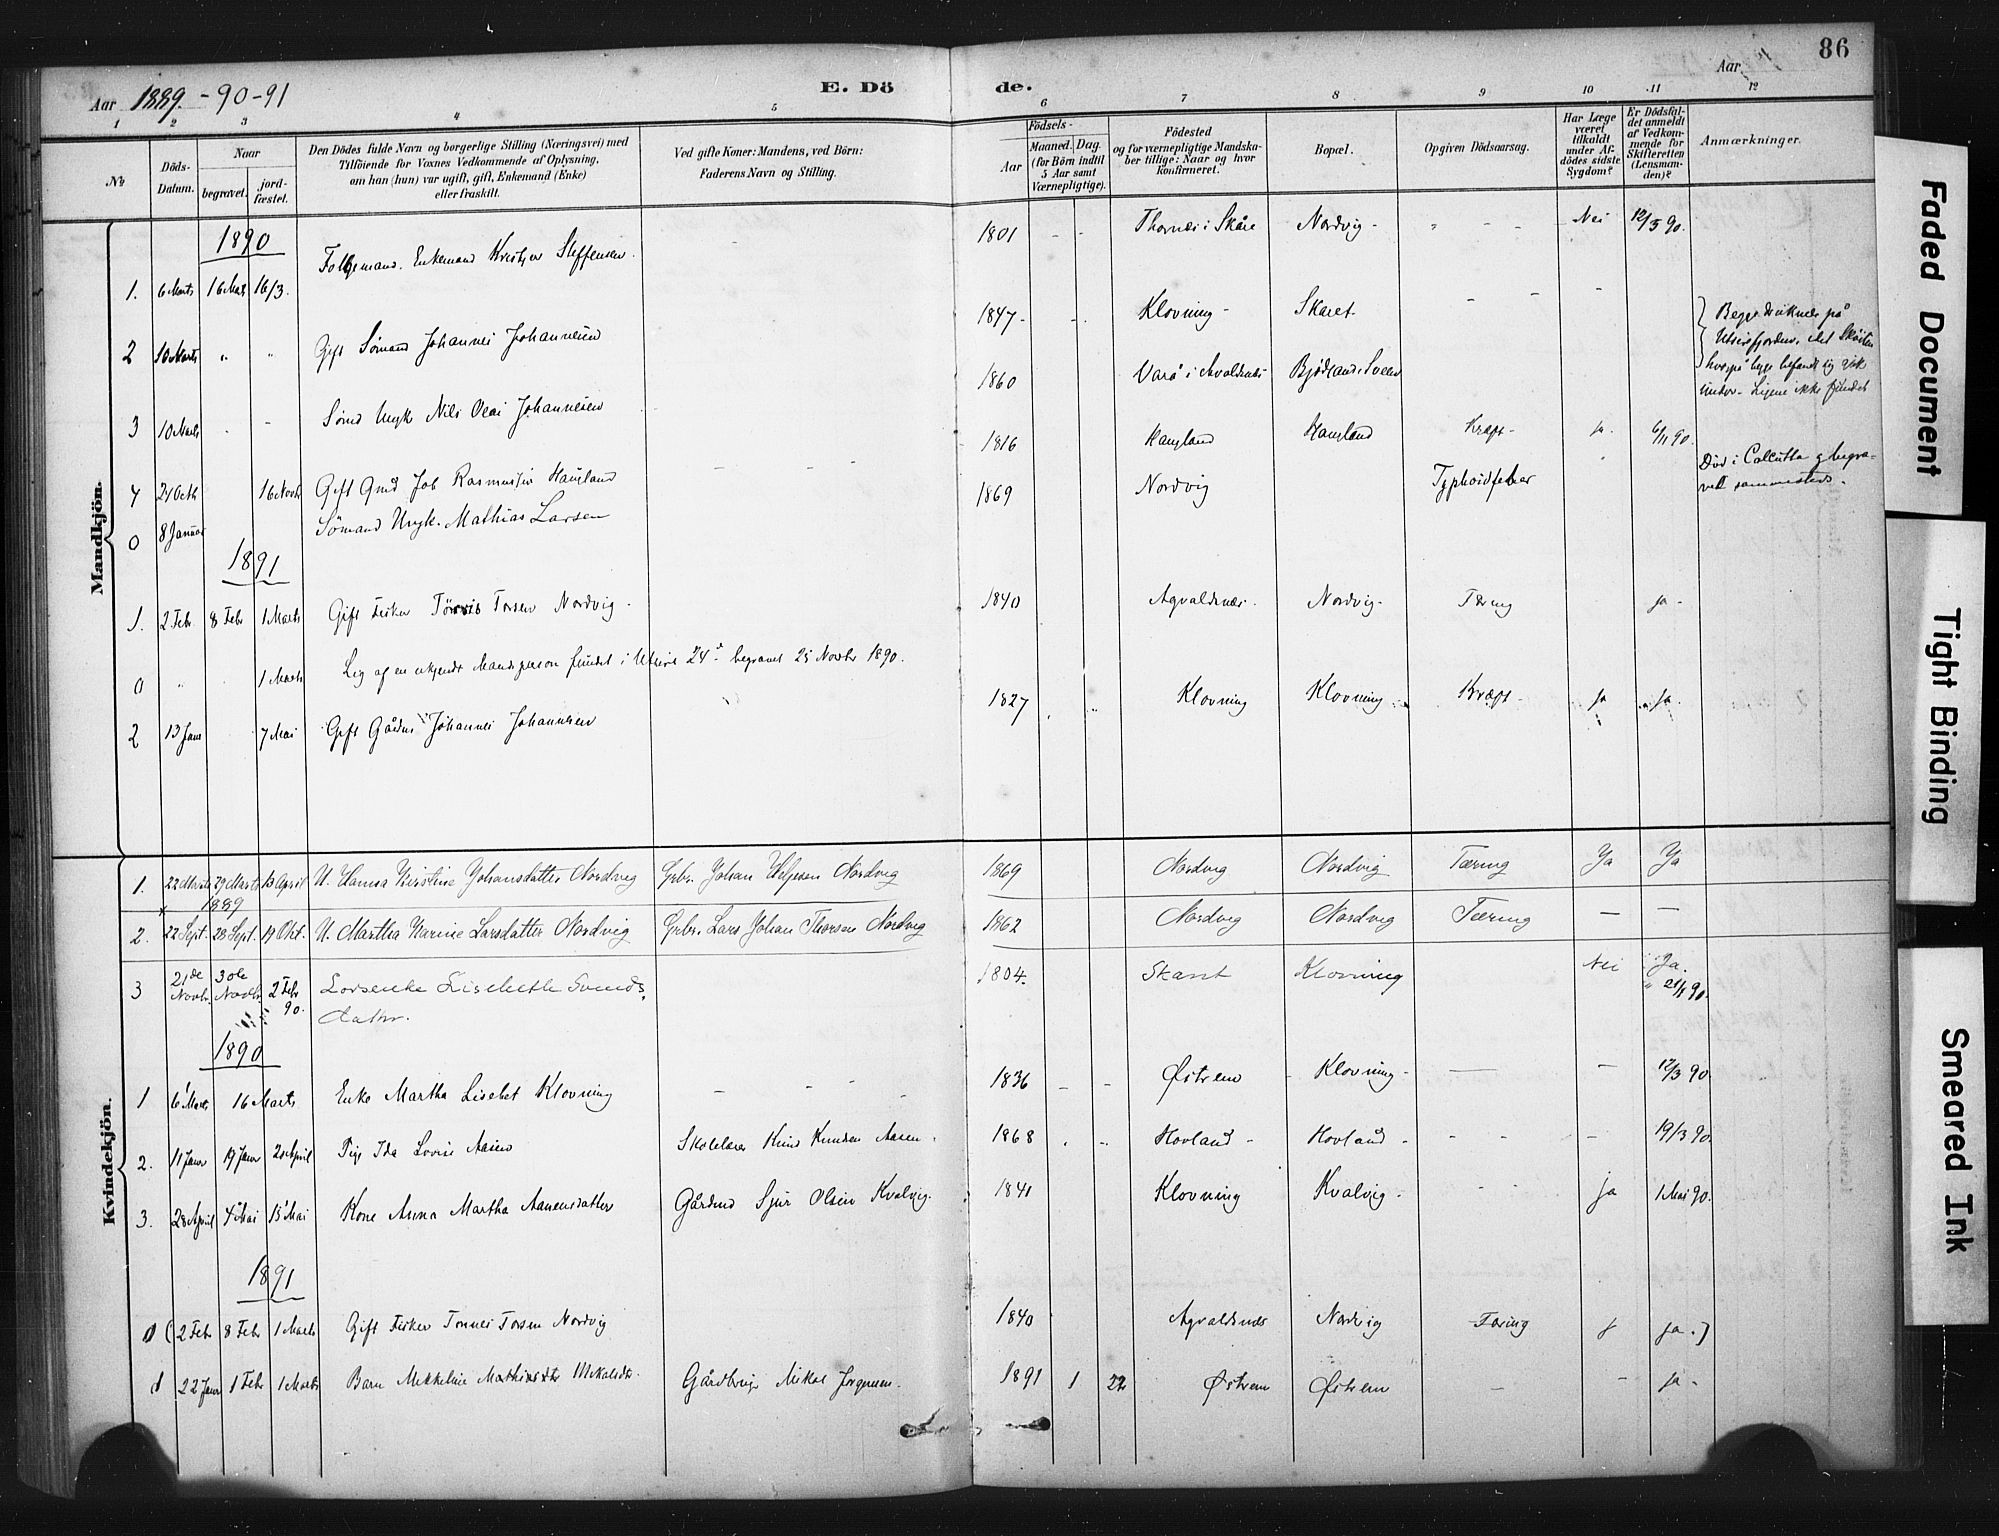 Aar 1889.-90-91 E. Dö de. Aar 86
1 2 3 4 5 6 7 8 9 10 11 12
No Döds-Datum. Naar begravet. jordfæstet. Den Dödes fulde Navn og borgerlige Stilling (Næringsvei) med Tilföiende for Voxnes Vedkommende af Oplysning, om han (hun) var ugift, gift, Enkemand (Enke) eller fraskilt. Ved gifte Koner: Mandens, ved Börn: Faderens Navn og Stilling. Födsels- Aar Maaned. Dag. (for Börn indtil 5 Aar samt Værnepligtige). Födested og for værnepligtige Mandskaber tillige: Naar og hvor konfirmeret. Bopæl. Opgiven Dödsaarsag. Har Læge været tilkaldt under Afdödes sidste Sygdom? Er Dödsfaldet anmeldt af Vedkommende for Skifteretten (Lensmanden)? Anmærkninger.
Mandkjön.
1890
1. 6 Marts 16 Mar 16/3. Enkemand Steffensen. 1801 - - Thornes i Skåre Nordvig - " - - Nei 12/3 90.
2 10 Marts " " Gift Sömand Johannes Johannesen 1847 - - Klovning - Skaret - - - -
3 10 Marts - - Sömd Ungk Nils Olai Johannesen 1860 Varå i Avaldsnes
Begge druknede på Utsirefjorden, idet Skøiten hvorpå begge befandt sig gik under - Ligene ikke fundet
4 24 Octb 16 Novb Gift Gmd Job Rasmussen Haugland - - - 1816 Haugland Haugland Kræft - ja. 6/11 90.
0 8 Januar Sömand Ungk. Mathias Larsen 1869 Nordvig Typhoidfeber Död i Calcutta og begravet sammesteds.
1891
1. 2 Febr 8 Febr 1 Marts Gift Fisker Torsen Nordvig - 1840 Agvaldsnes. Nordvig - Tæring ja -
0 " 1 Marts Lig af en ukjendt Mandsperson fundet i Utsire 24d begravet 25 Novbr 1890.
2 13 Jan 7 Mai Gift Gårdm Johannes Johannesen 1827 " Klovning Klovning Kræft - ja ja.
Kvindekjön.
1. 22 Marts 29 Marts 13 April U. Hanna Kirstine Johansdatter Nordvig Grbr. Johan Helgesen Nordvig 1869 Nordvig Nordvig Tæring Ja Ja
1889
2. 22 Sept. 28 Sept. 19 Okt. U. Martha Karine Larsdatter Nordvig Grbr. Lars Johan Thorsen Nordvig 1862 Nordvig Nordvig Tæring — —
3 21de Novbr. 30te Novbr. 2 Febr 90. Lisebeth datter. 1804. Klovning Nei Ja. 21/1 90.
1890
1 6 Marts 16 Marts Enke Martha Lisebet Klovning - - - 1836 - - Østrem - Klovning - — — 12/3 90.
2. 11 Janr 19 Janr 20 April Pige Ida Lovise Aasen Skolelærer Knud Knudsen Aasen. 1868 " " Hovland - Hovland - - - - 19/3 90.
3. 28 April 4 Mai 15 Mai Kone Anna Martha Aanensdatter Gårdmd Sjur Olsen Kvalvig. 1841 Klovning Kvalvig - - - ja 1 Mai 90.
1891
( 2 Febr 8 Febr 1 Marts Gift Fisker Tønnes Torsen Nordvig 1840 Agvaldsnæs Nordvig Tæring ja.)
1 22 Janr 1 Febr 1 Marts Barn Mikkeline Mikalsdtr. Gårdbrug Mikal Jørgensen. 1891 1 22 Østrem Østrem - - ja -
Faded Document
Tight Binding
Smeared Ink